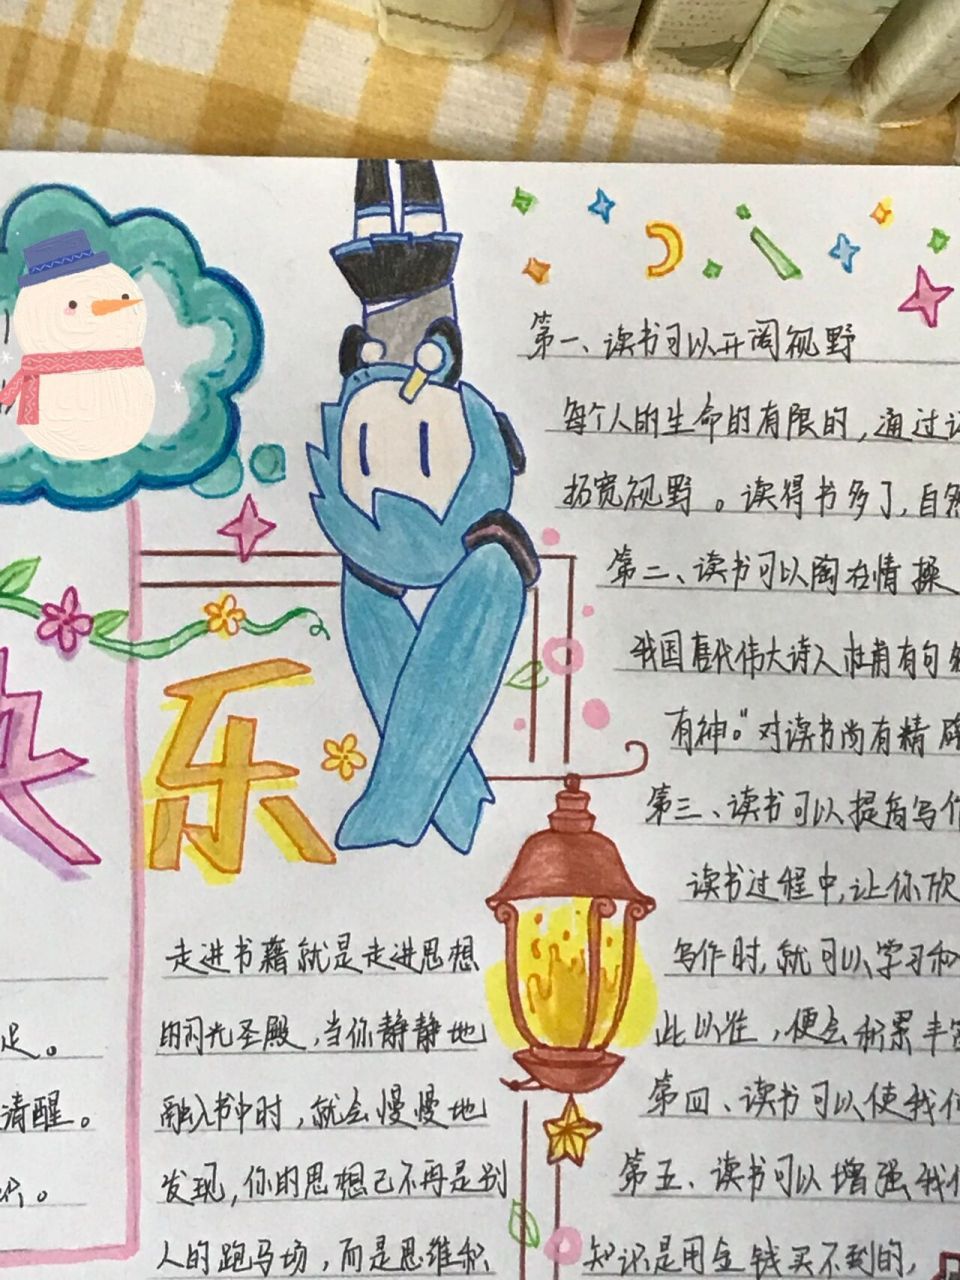 快乐
足。
清醒。
走进书籍就是走进思想
的闪光圣殿,当你静静地
融入书中时,就会慢慢地
发现,你的思想已不再是别
人的跑马场,而是思维积
第一、读书可以开阔视野
每个人的生命的有限的,通过
拓宽视野。读得书多了,自然
第二、读书可以陶冶情操
我国唐代伟大诗人杜甫有句
有神。"对读书尚有精辟
第三、读书可以提高写作
读书过程中,让你欣
写作时,就可以学习和
此以往,便会积累丰富
第四、读书可以使我们
第五、读书可以增强我们
知识是用金钱买不到的,